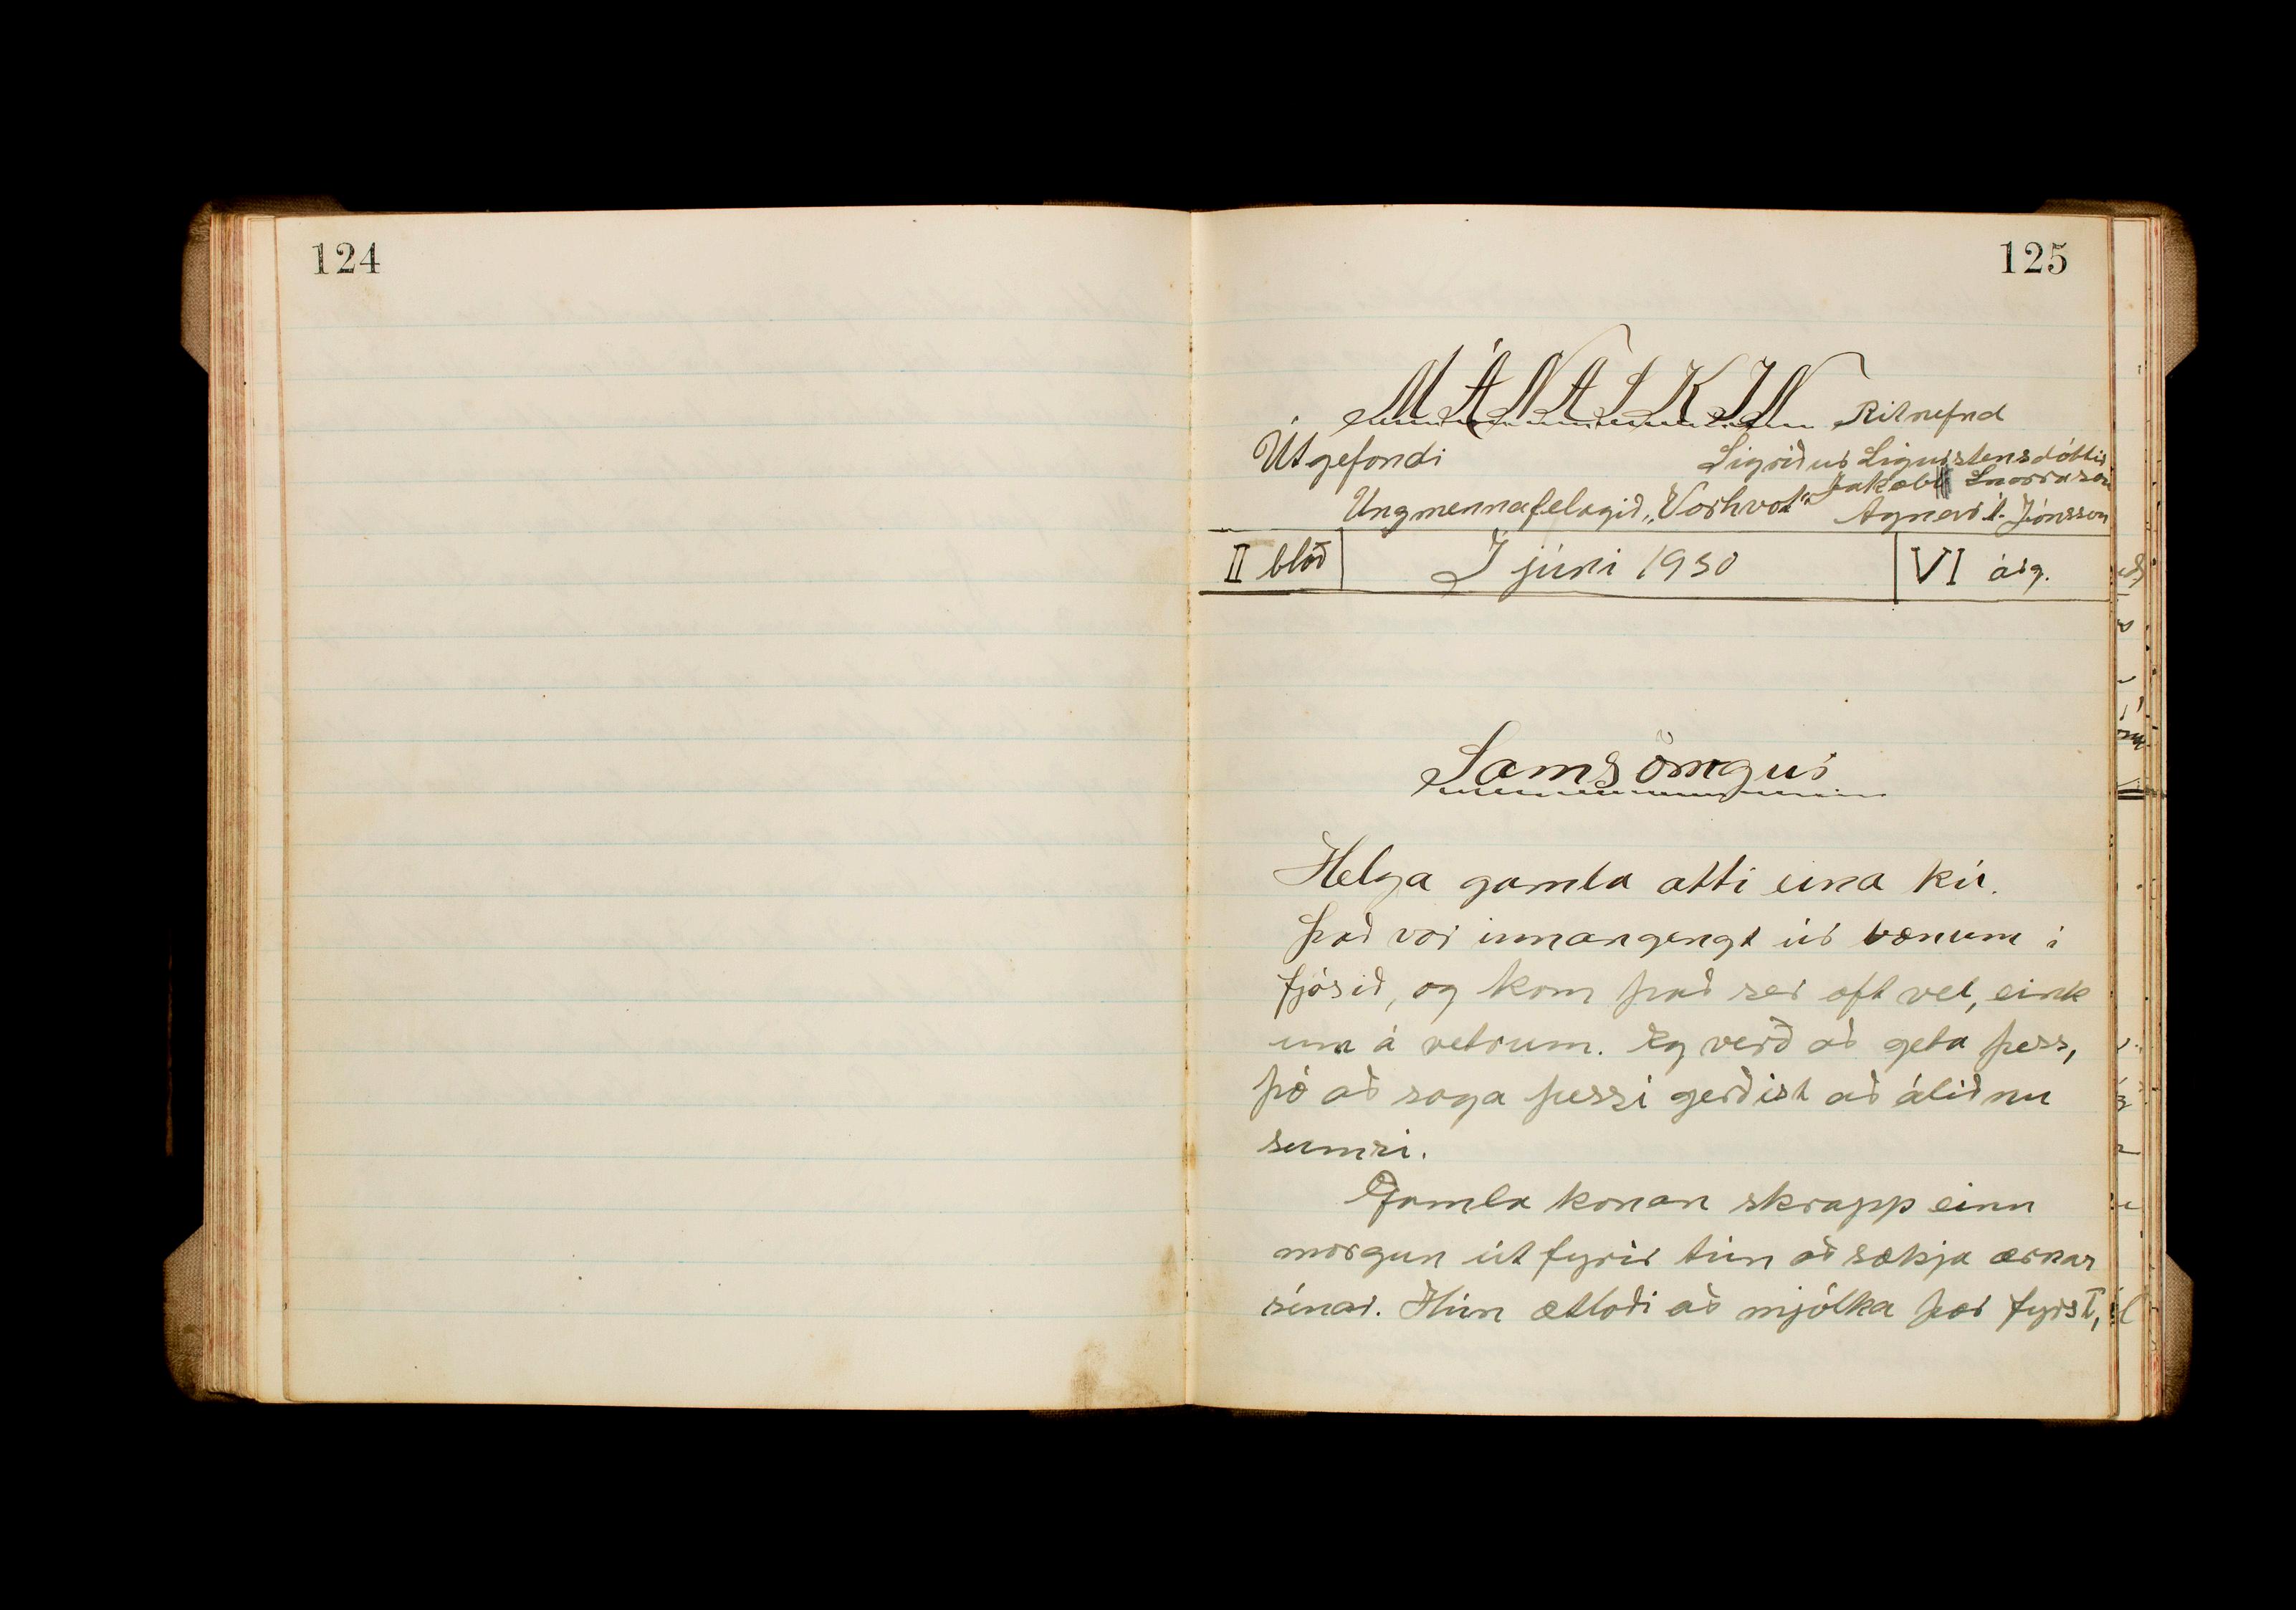 124
125
MÁNASKIN
Ritnefnd
Útgefandi
Sigríður Sigursteinsdóttir
Jakob Snorrason
Ungmennafelagið „Vorhvot"
Agnar t. Jónsson
II blað
I júni 1930
VI árg.
Samsöngur
Helga gamla atti eina kú.
Það var innangengt úr bænum i
fjósið, og kom það ser oft vel, eink
um á vetrum. Eg verð að geta þess,
þó að saga þessi gerðist að áliðnu
sumri.
Gamla konan skrapp einn
morgun út fyrir tún að sækja ærnar
sínar. Hún ætlaði að mjólka þær fyrst,